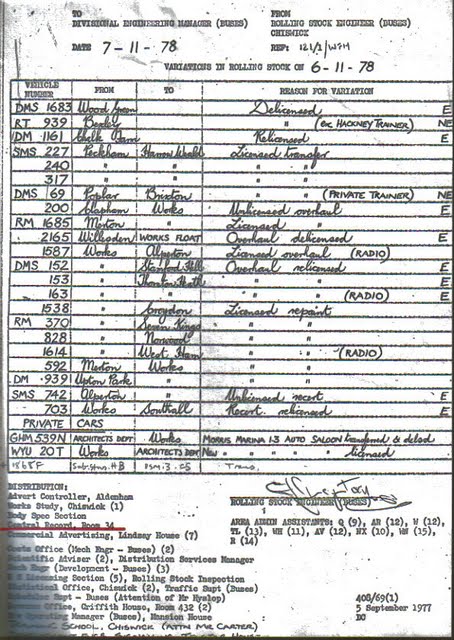 TO FROM
DIVISIONAL ENGINEERING MANAGER (BUSES) ROLLING STOCK ENGINEER (BUSES)
CHISWICK
DATE 7-11-78 REF: 121/1/WFH
VARIATIONS IN ROLLING STOCK ON 6-11-78
VEHICLE NUMBER FROM TO REASON FOR VARIATION
DMS 1683 Wood Green Delicensed E
RT 939 Bexley " (ex HACKNEY TRAINER) NE
DM 1161 Chalk Farm Relicensed E
SMS 227 Peckham Harrow Weald Licensed transfer
240 " " " "
317 " " " "
DMS 69 Poplar Brixton " " (PRIVATE TRAINER) NE
200 Clapham Works Unlicensed overhaul E
RM 1685 Merton " Licensed "
2165 Willesden WORKS FLOAT Overhaul delicensed E
1587 Works Alperton Licensed overhaul (RADIO)
DMS 152 " Stamford Hill Overhaul relicensed E
153 " Thornton Heath " " E
163 " " " " (RADIO) E
1538 " Croydon Licensed repaint
RM 370 " Seven Kings " "
828 " Norwood " "
1614 " West Ham " " (RADIO)
592 Merton Works " "
DM 939 Upton Park " " "
SMS 742 Alperton " Unlicensed recert E
703 Works Southall Recert relicensed E
PRIVATE CARS
GHM 539N ARCHITECTS DEPT Works MORRIS MARINA 1.3 AUTO SALOON transferred & delcd
WYU 20T Works ARCHITECTS DEPT New " " " " licensed
DISTRIBUTION:
Advert Controller, Aldenham
Works Study, Chiswick (1)
Body Spec Section
Central Record, Room 34
Commercial Advertising, Lindsay House (7)
Costs Office (Mech Engr - Buses) (2)
Scientific Adviser (2), Distribution Services Manager
Mech Engr (Development - Buses) (3)
Licensing Section (5), Rolling Stock Inspection
Statistical Office, Chiswick (2), Traffic Supt (Buses)
Supt - Buses (Attention of Mr Hyslop)
Office, Griffith House, Room 432 (2)
Operating Manager (Buses), Mansion House
SCHOOL, CHISWICK (ATTN MR CARTER)
ROLLING STOCK ENGINEER (BUSES)
AREA ADMIN ASSISTANTS: Q (9), AR (12), W (12)
TL (13), WH (11), AV (12), NX (10), WN (15),
R (14)
408/69(1)
5 September 1977
DO